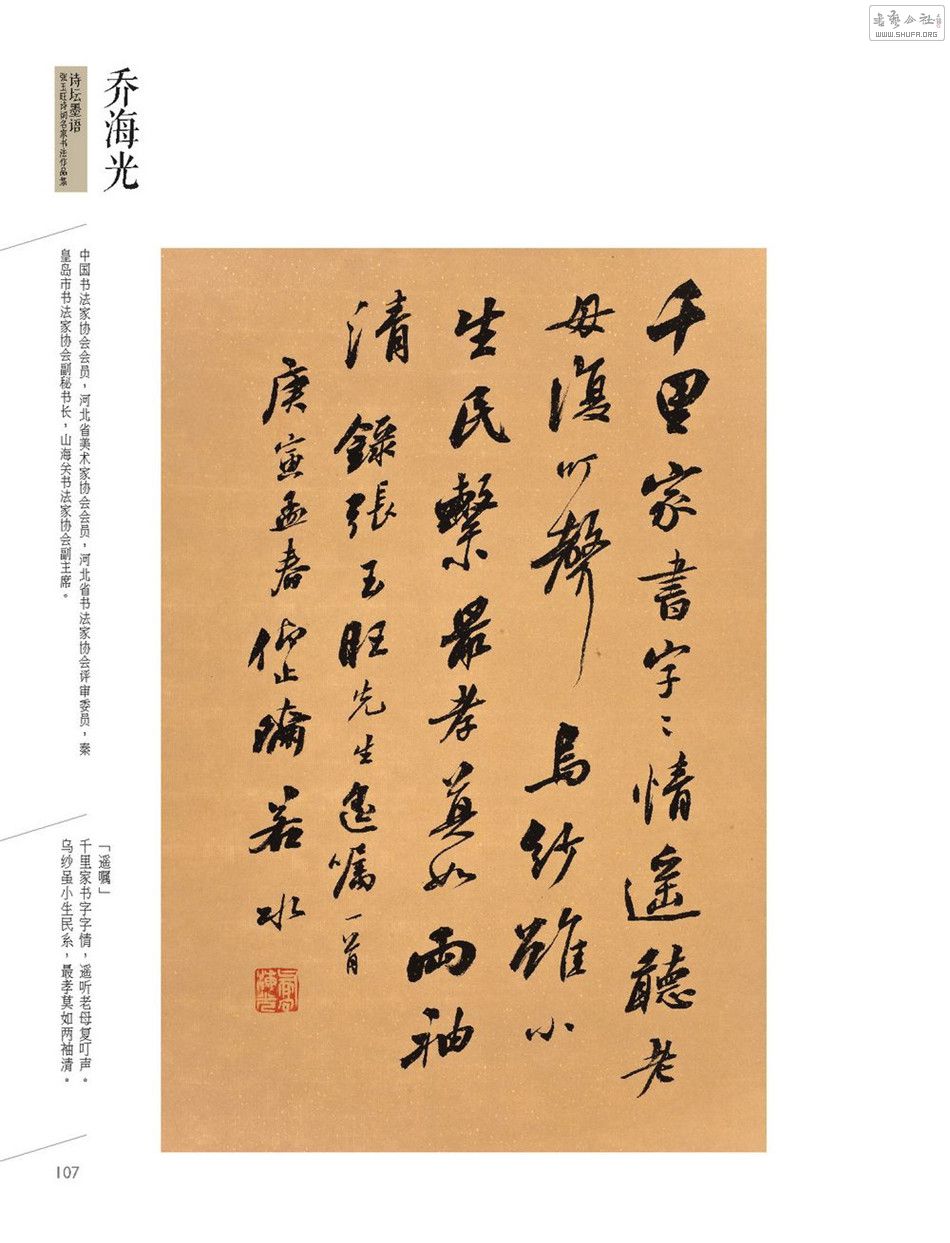 书艺公社
WWW.SHUFA.ORG
乔海光
诗坛墨语
张玉旺诗词名家书法作品集
中国书法家协会会员，河北省美术家协会会员，河北省书法家协会评审委员，秦
皇岛市书法家协会副秘书长，山海关书法家协会副主席。
千里家書字〻情遥聽老
母復叮聲烏紗雖小
生民繫最孝莫如兩袖
清錄張玉旺先生遥嘱一首
庚寅孟春
若水
「遥嘱」
千里家书字字情，遥听老母复叮声。
乌纱虽小生民系，最孝莫如两袖清。
107